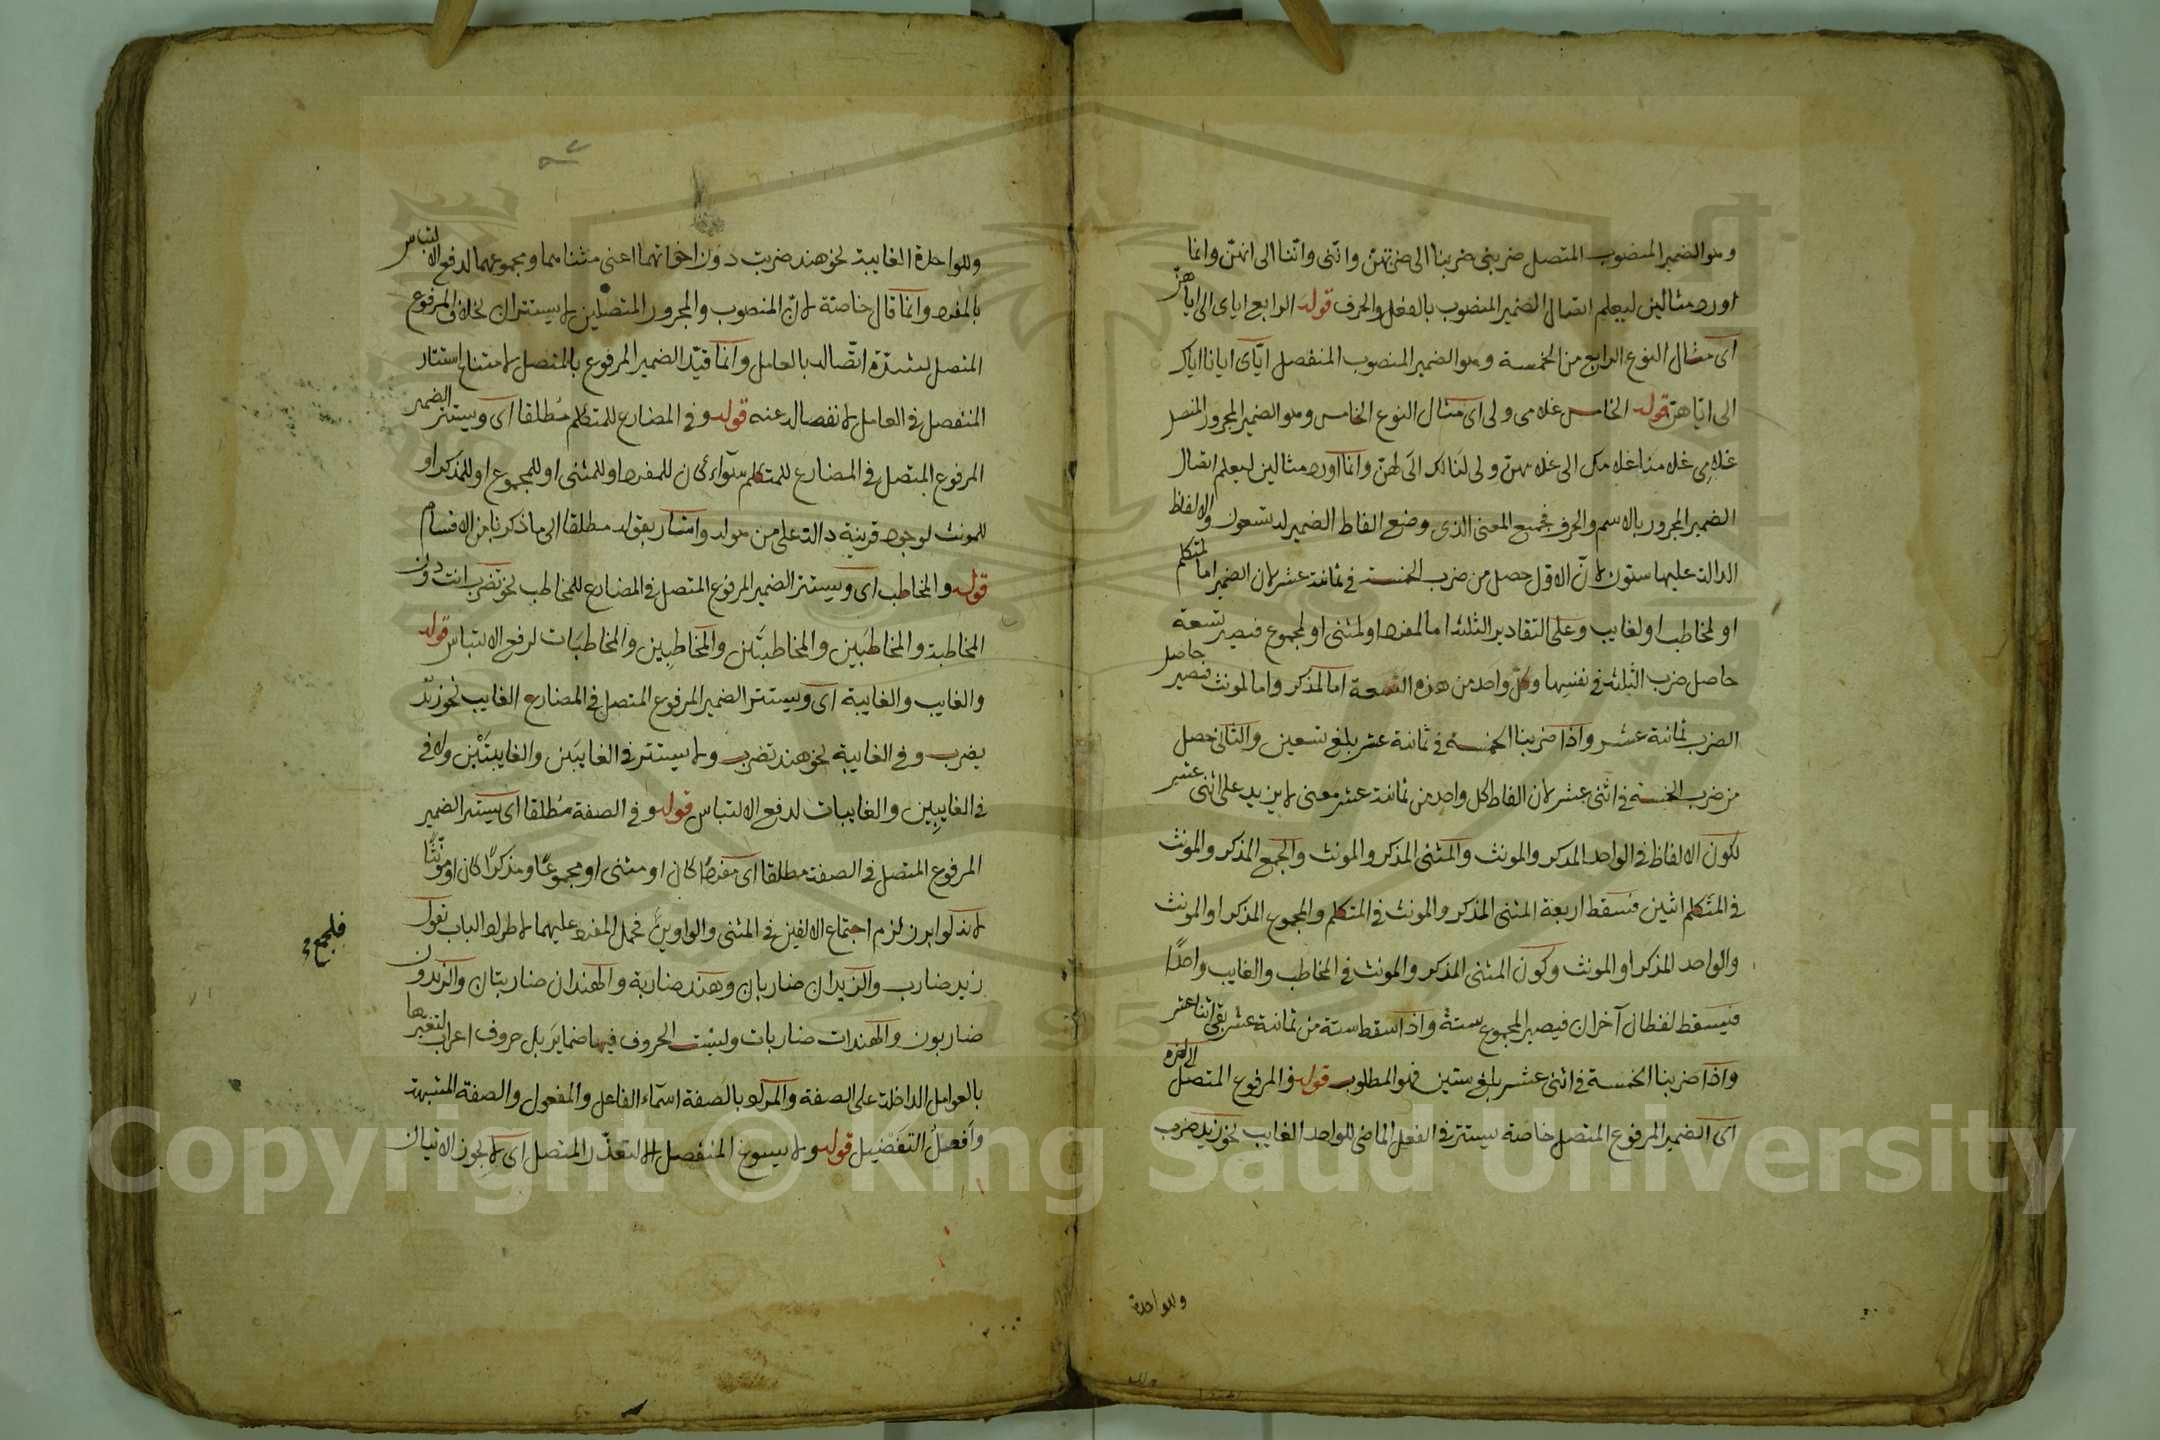 وهو الضمير المنصوب المتصل ضربنى ضربنا الى ضربهن وانّنى وانّنا الى انهنّ وانما
اورد مثالين ليعلم اتصال الضمير المنصوب بالفعل والحرف قوله الرابع اياى الى اياهنّ
اى مثال النوع الرابع من الخمسة وهو الضمير المنصوب المنفصل ايّاى ايانا اياك
الى اياهن قوله الخامس غلامى ولى اى مثال النوع الخامس وهو الضمير المجرور المتصل
غلامِى غلامنا غلامك الى غلامهنّ ولى لنا لك الى لهنّ وانما اورد مثالين ليعلم اتصال
الضمير المجرور بالاسم والحرف فجميع المعنى الذى وضع الفاظ الضمير له تسعون والالفاظ
الدالة عليها ستون لانّ الاول حصل من ضرب الخمسة فى ثمانية عشر لان الضمير اما لمتكلم
او لمخاطب او لغايب وعلى التقادير الثلثة اما لمفرد او لمثنى او لمجموع فيصير تسعة
حاصل ضرب الثلثة فى نفسها وكل واحد من هذه التسعة اما لمذكر واما لمونث فيصير حاصل
الضرب ثمانية عشر واذا ضربنا الخمسة فى ثمانية عشر بلغ تسعين والثانى حصل
من ضرب الخمسة فى اثنى عشر لان الفاظ كل واحد من ثمانية عشر معنى لا يزيد على اثنى عشر
لكون الالفاظ فى الواحد المذكر والمونث والمثنى المذكر والمونث والجمع المذكر والمونث
فى المتكلم اثنين فتسقط اربعة المثنى المذكر والمونث فى المتكلم والمجموع المذكر او المونث
والواحد المذكر او المونث وكون المثنى المذكر والمونث فى المخاطب والغايب واحدًا
فيسقط لفظان آخران فيصير المجموع ستة واذا سقط ستة من ثمانية عشر بقى اثنا عشر
واذا ضربنا الخمسة فى اثنى عشر بلغ ستين فهو المطلوب قوله والمرفوع المتصل الى اخره
اى الضمير المرفوع المتصل خاصة يستتر فى الفعل الماضى للواحد الغايب نحو زيد ضرب
وللواحدة
وللواحدة الغايبة نحو هند ضربت دون اخواتهما اعنى مثناهما ومجموعهما لدفع الالتباس
بالمفرد وانما قال خاصة لانّ المنصوب والمجرور المتصلين لا يستتران بخلاف المرفوع
المتصل لشدّة اتّصاله بالعامل وانما قيّد الضمير المرفوع بالمتصل لامتناع استتار
المنفصل فى العامل لانفصاله عنه قوله وفى المضارع للمتكلم مُطلقا اى ويستتر الضمير
المرفوع المتصل فى المضارع للمتكلم سواء كان للمفرد او للمثنى او للمجموع او للمذكر او
للمونث لوجود قرينة دالة على من هو له واشار بقوله مطلقا الى ما ذكرنا من الاقسام
قوله والمخاطب اى ويستتر الضمير المرفوع المتصل فى المضارع للمخاطب نحو تضرب انت دون
المخاطبة والمخاطبَين والمخاطبتَين والمخاطبِين والمخاطبَات لرفع الالتباس قوله
والغايب والغايبة اى ويستتر الضمير المرفوع المتصل فى المضارع الغايب نحو زيد
يضرب وفى الغايبة نحو هند تضرب ولا يستتر فى الغايبَين والغايبتَيْن ولا فى
فى الغايبِين والغايبات لدفع الالتباس قوله وفى الصفة مُطلقا اى يستتر الضمير
المرفوع المتصل فى الصفة مطلقا اى مفردًا كان او مثنى او مجموعًا ومذكرًا كان او مؤنثًا
لانه لو ابرز لزم اجتماع الالفين فى المثنى والواوين فحمل المفرد عليهما لاطراد الباب تقول
فلجمع
زيد ضارب والزيدان ضاربان وهند ضاربة والهندان ضاربتان والزيدون
ضاربون والهندات ضاربات وليست الحروف فيها ضماير بل حروف اعراب لتغيرها
بالعوامل الداخلة على الصفة والمراد بالصفة اسماء الفاعل والمفعول والصفة المشبهة
وافعلُ التفضيل قوله ولا يسوغ المنفصل الا لتعذّر المتصل اى لا يجوز الاتيان
Copyright © King Saud University